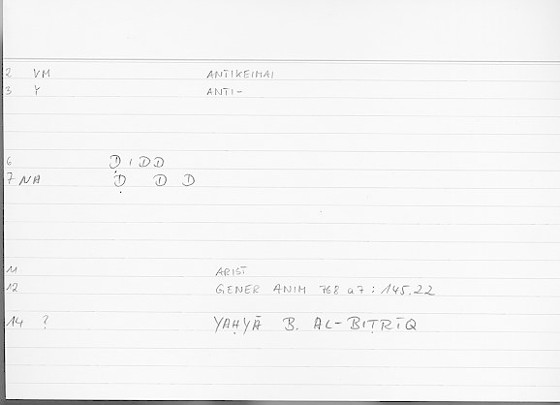 2 VM ANTIKEIMAI
3 Y ANTI-
6 Ḍ I D D
7 NA Ḍ D D
11 ARIST
12 GENER ANIM 768 a7 : 145,22
14 ? YAḤYĀ B. AL-BIṬRĪQ